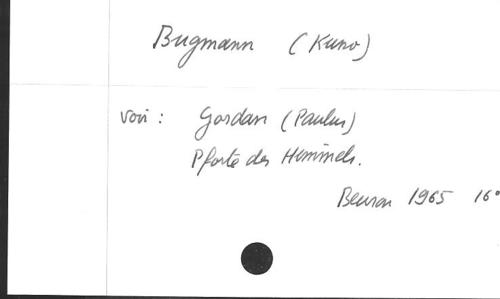 Bugmann (Kuno)
voir : Gordan (Paulus)
Pforte des Himmels.
Beuron 1965 16°